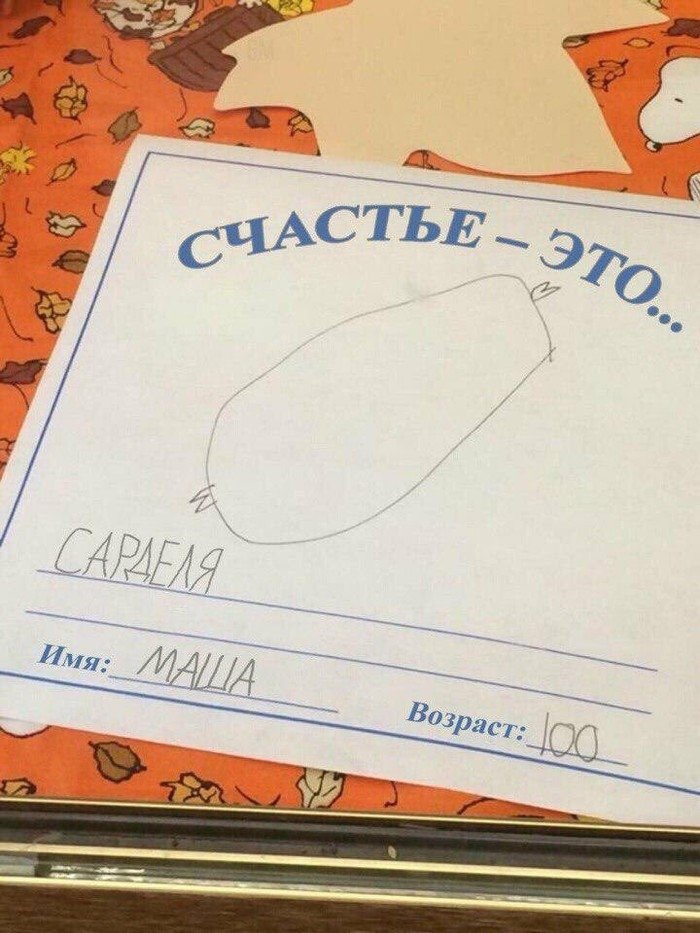 СЧАСТЬЕ – ЭТО...
САРДЕЛЯ
Имя: МАША
Возраст: 100